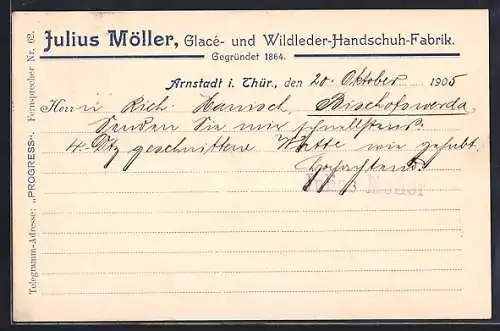 Julius Möller, Glacé- und Wildleder-Handschuh-Fabrik.
Gegründet 1864.
Arnstadt i. Thür., den 20. Oktober 1905
Herrn Rich. Hamsch, Bischofswerda
Senden Sie mir schnellstens
4 Dtz geschnittene Watte wie gehabt.
Hochachtend
Julius Möller
Telegramm-Adresse: „PROGRESS“. Fernsprecher Nr. 62.